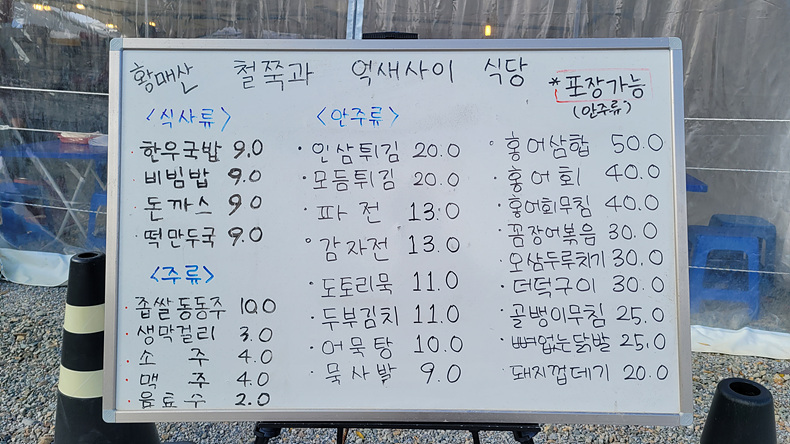 황매산 철쭉과 억새사이 식당
*포장가능
(안주류)
<식사류>
·한우국밥 9.0
·비빔밥 9.0
·돈까스 9.0
·떡만두국 9.0
<주류>
·좁쌀동동주 10.0
·생막걸리 3.0
·소 주 4.0
·맥 주 4.0
·음료수 2.0
<안주류>
·인삼튀김 20.0
·모듬튀김 20.0
·파전 13.0
·감자전 13.0
·도토리묵 11.0
·두부김치 11.0
·어묵탕 10.0
·묵사발 9.0
·홍어삼합 50.0
·홍어회 40.0
·홍어회무침 40.0
·꼼장어볶음 30.0
·오삼두루치기 30.0
·더덕구이 30.0
·골뱅이무침 25.0
·뼈없는닭발 25.0
·돼지껍데기 20.0